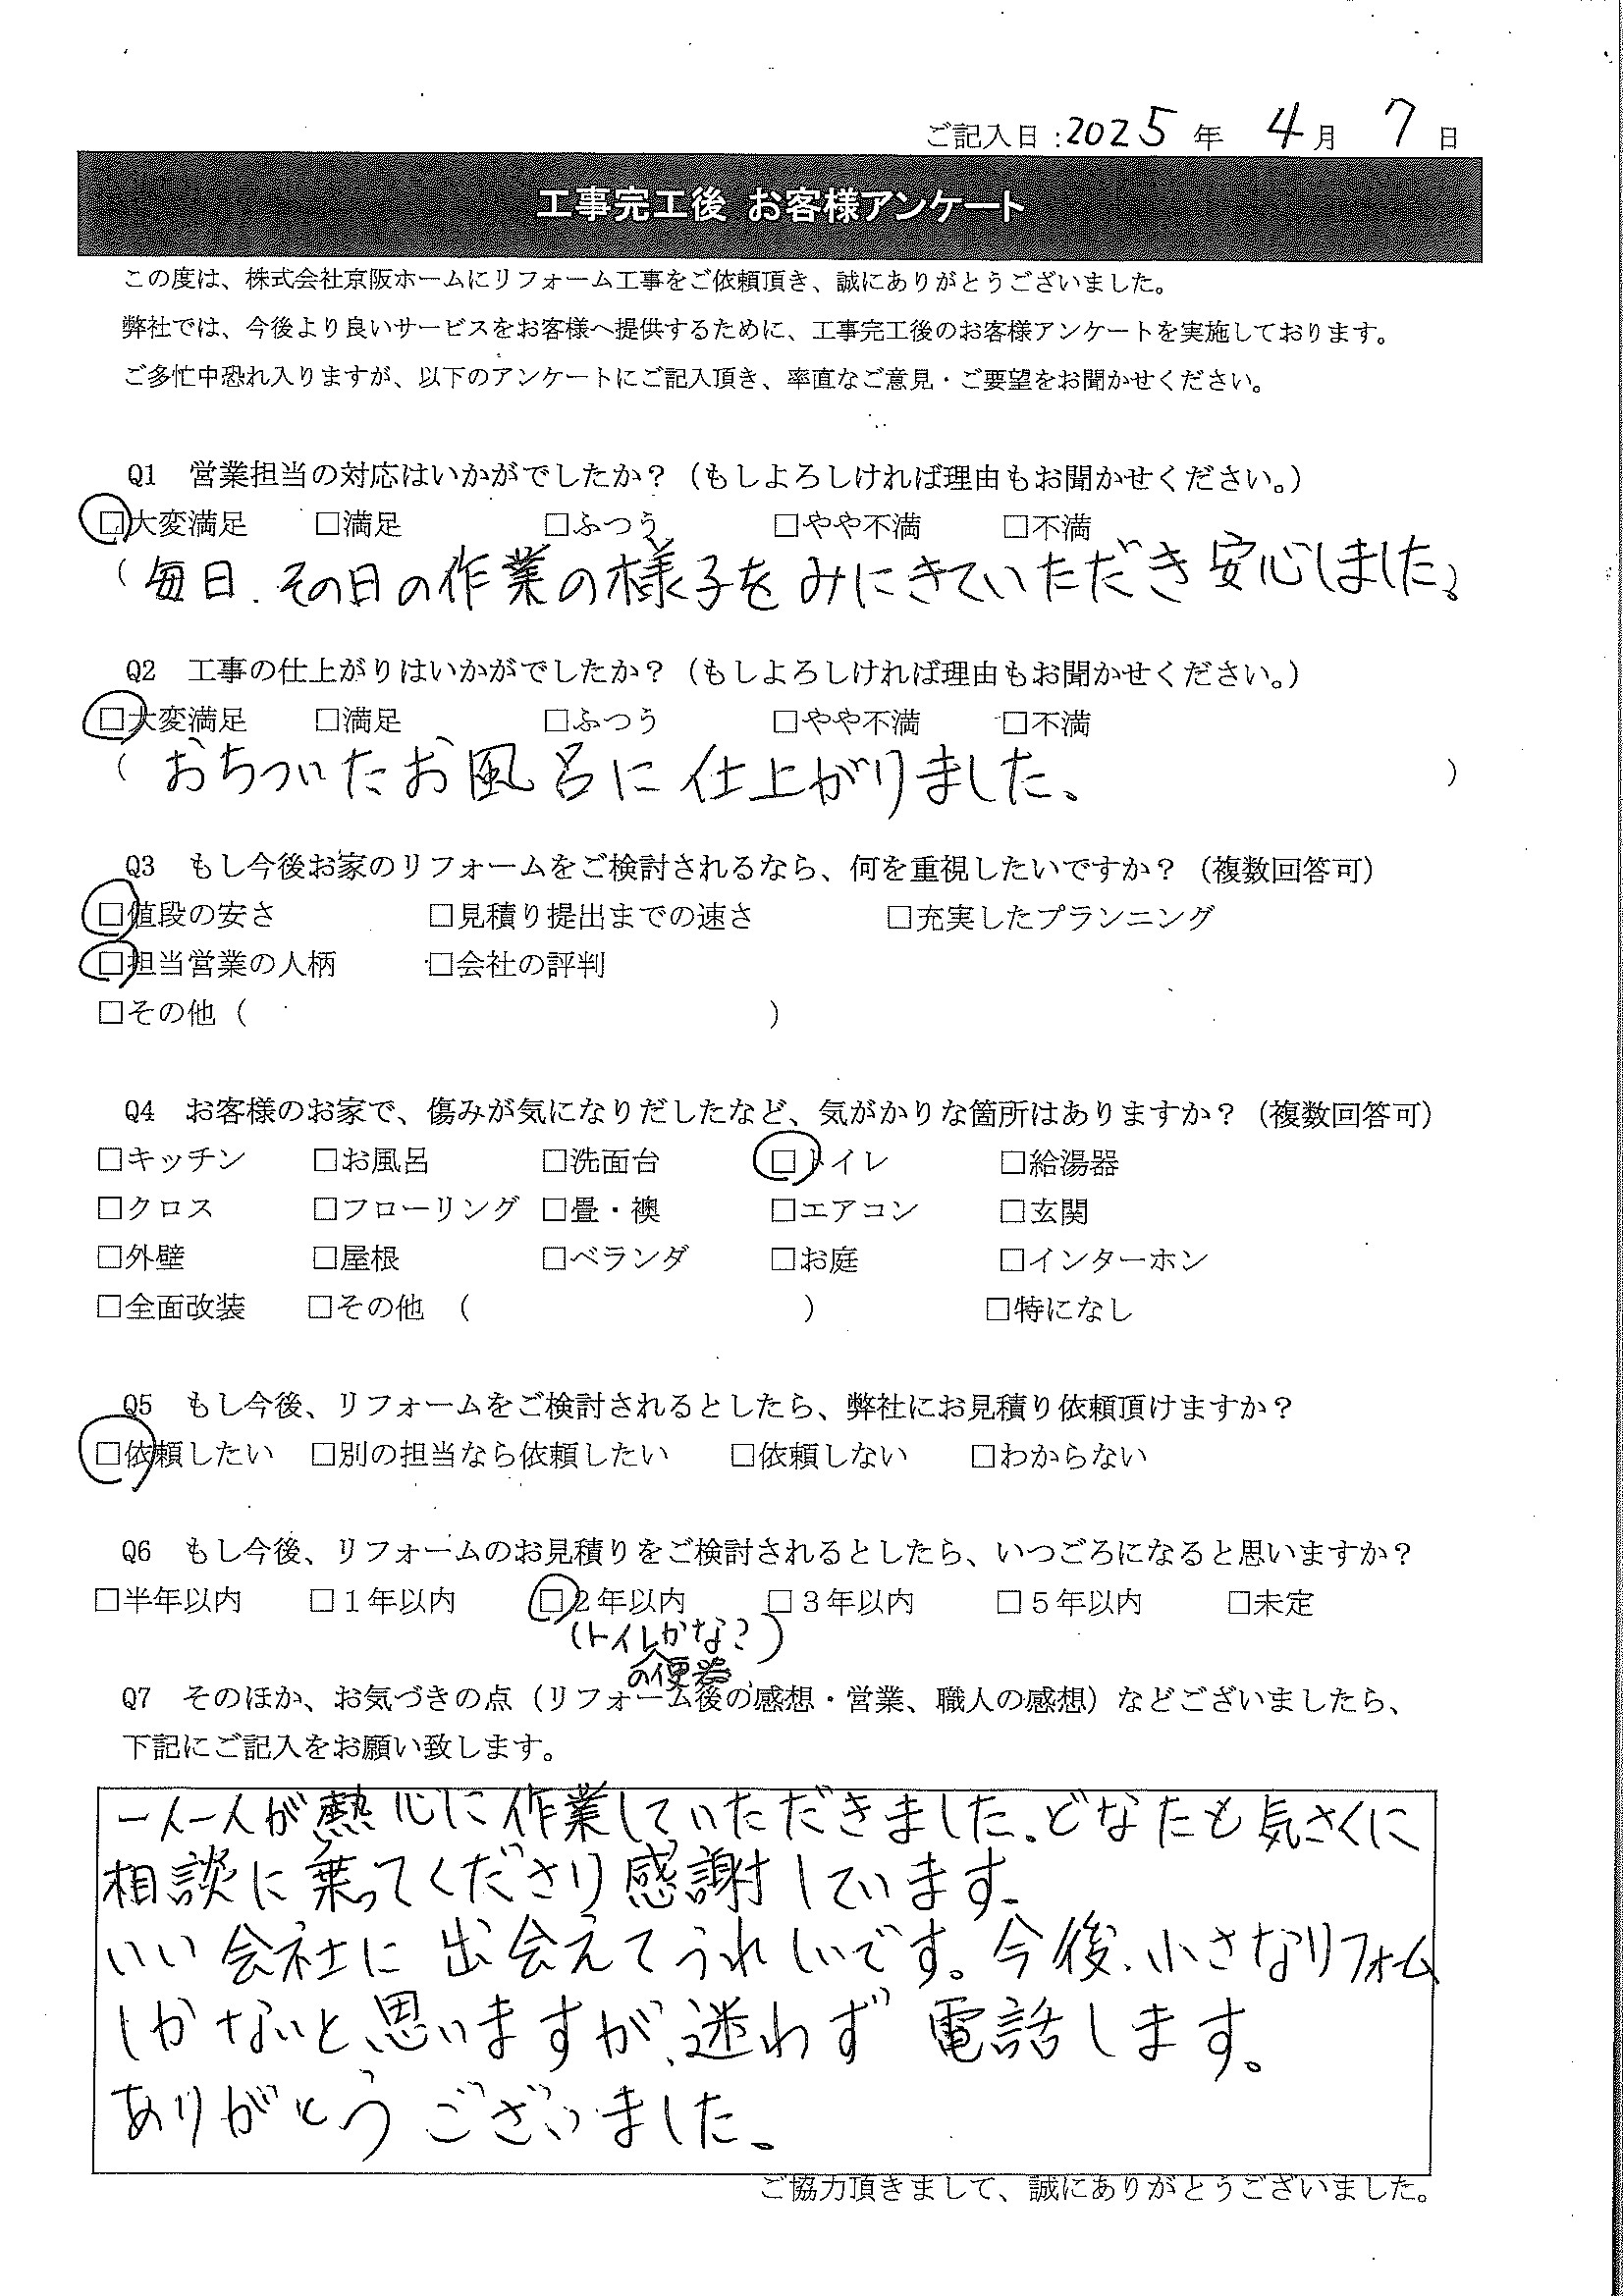 ご記入日：2025年 4月 7日
工事完工後 お客様アンケート
この度は、株式会社京阪ホームにリフォーム工事をご依頼頂き、誠にありがとうございました。
弊社では、今後より良いサービスをお客様へ提供するために、工事完工後のお客様アンケートを実施しております。
ご多忙中恐れ入りますが、以下のアンケートにご記入頂き、率直なご意見・ご要望をお聞かせください。
Q1 営業担当の対応はいかがでしたか？（もしよろしければ理由もお聞かせください。）
□大変満足 □満足 □ふつう □やや不満 □不満
（毎日、その日の作業の様子をみにきていただき安心しました。
Q2 工事の仕上がりはいかがでしたか？（もしよろしければ理由もお聞かせください。）
□大変満足 □満足 □ふつう □やや不満 □不満
（おちついたお風呂に仕上がりました、）
Q3 もし今後お家のリフォームをご検討されるなら、何を重視したいですか？（複数回答可）
□値段の安さ □見積り提出までの速さ □充実したプランニング
□担当営業の人柄 □会社の評判
□その他（ ）
Q4 お客様のお家で、傷みが気になりだしたなど、気がかりな箇所はありますか？（複数回答可）
□キッチン □お風呂 □洗面台 □トイレ □給湯器
□クロス □フローリング □畳・襖 □エアコン □玄関
□外壁 □屋根 □ベランダ □お庭 □インターホン
□全面改装 □その他 （ ） □特になし
Q5 もし今後、リフォームをご検討されるとしたら、弊社にお見積り依頼頂けますか？
□依頼したい □別の担当なら依頼したい □依頼しない □わからない
Q6 もし今後、リフォームのお見積りをご検討されるとしたら、いつごろになると思いますか？
□半年以内 □１年以内 □２年以内 □３年以内 □５年以内 □未定
（トイレかな？）
の便器
Q7 そのほか、お気づきの点（リフォーム後の感想・営業、職人の感想）などございましたら、
下記にご記入をお願い致します。
一人一人が熱心に作業していただきました。どなたも気さくに
相談に乗ってくださり感謝しています。
いい会社に出会えてうれしいです。今後、小さなリフォム
しかないと思いますが、迷わず電話します。
ありがとうございました。
ご協力頂きまして、誠にありがとうございました。